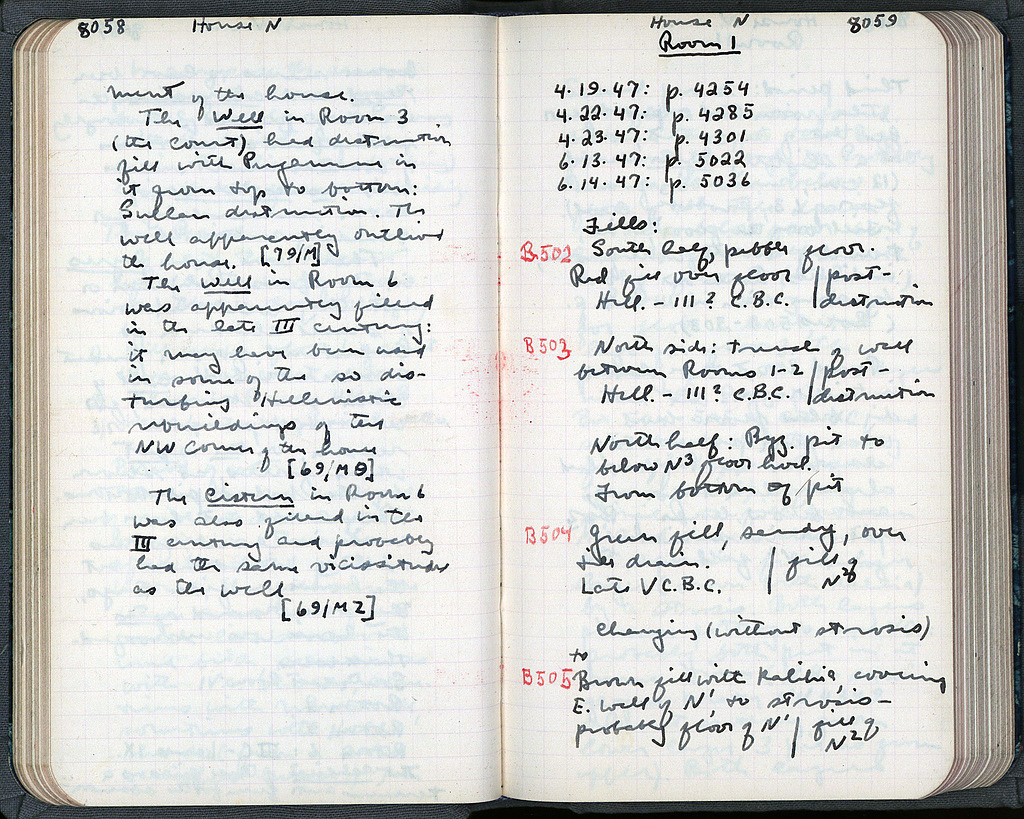 8058 House N
ment of the house.
The Well in Room 3
(the court) had destruction
fill with Pergamene in
it from top to bottom:
Sullan destruction. The
well apparently outlived
the house. [79/M]
The Well in Room 6
was apparently filled
in the late III century:
it may have been used
in some of the so dis-
turbing Hellenistic
rebuildings of the
NW Corner of the house
[69/MΘ]
The Cistern in Room 6
was also filled in the
III century and probably
had the same vicissitudes
as the well
[69/MZ]
House N 8059
Room 1
4·19·47: p. 4254
4·22·47: p. 4285
4·23·47: p. 4301
6·13·47: p. 5022
6·14·47: p. 5036
Fills:
B502 South half, pebble floor.
Red fill over floor / post-
Hell. - III? C.B.C. / destruction
B503 North side: trench of wall
between Rooms 1-2 / post-
Hell. - III? C.B.C. / destruction
North half: Byz. pit to
below N³ floor level.
From bottom of pit
B504 Green fill, sandy, over
drain. / fill of
Late V C.B.C. N²
Changing (without strosis)
to
B505 Brown fill with kalibia, covering
E. wall of N' to strosis -
probably floor of N' / fill of
N²